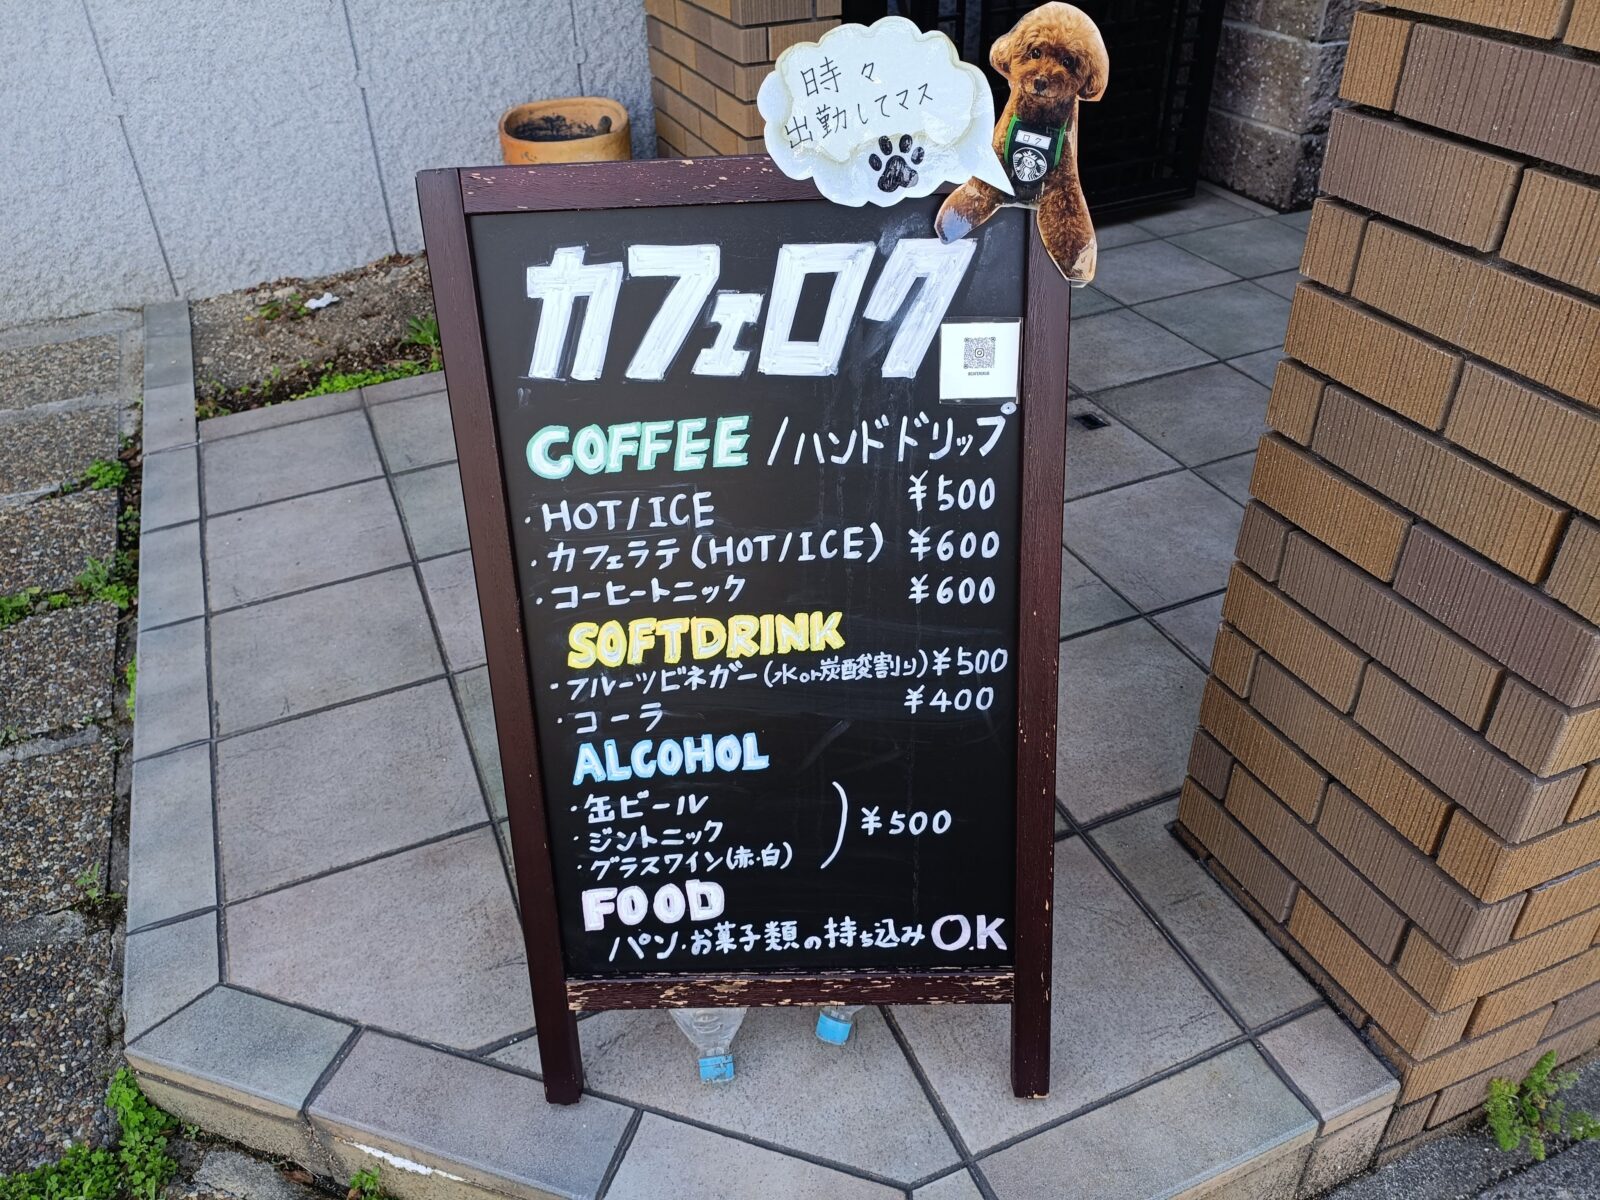 時々
出勤してマス
ロク
カフェロク
COFFEE /ハンドドリップ
・HOT/ICE ¥500
・カフェラテ(HOT/ICE) ¥600
・コーヒートニック ¥600
SOFTDRINK
・フルーツビネガー(水or炭酸割り) ¥500
・コーラ ¥400
ALCOHOL
・缶ビール
・ジントニック
・グラスワイン(赤・白)
¥500
FOOD
パン・お菓子類の持ち込みO.K